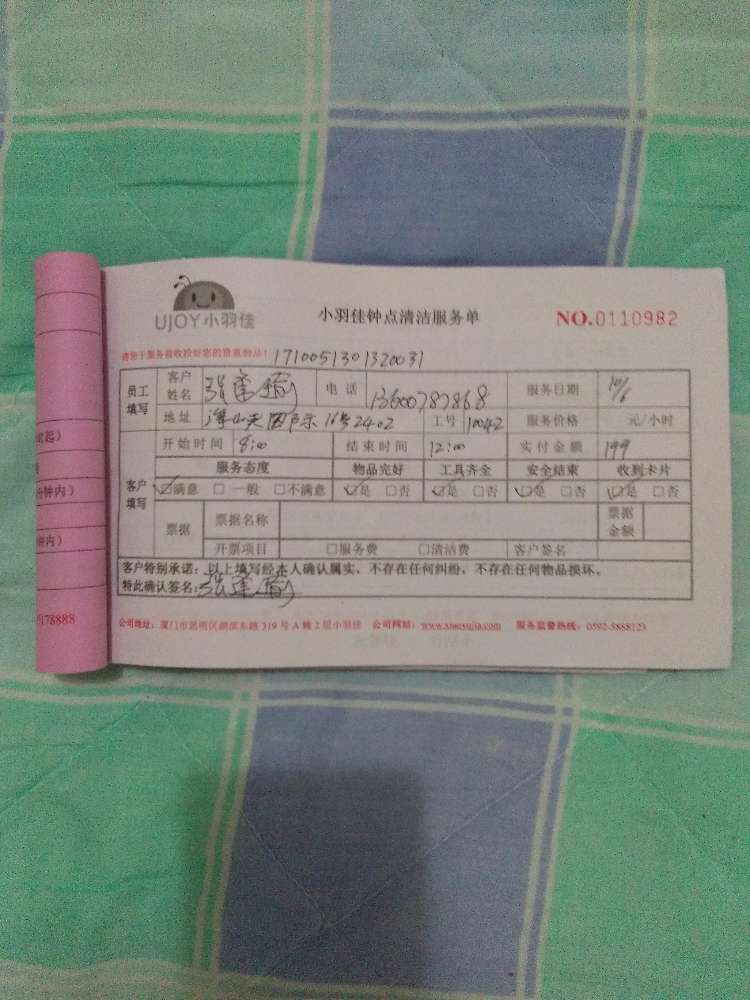 UJOY小羽佳
小羽佳钟点清洁服务单
NO.0110982
1710051301320031
员工填写
客户姓名 张 电话 13600787868 服务日期 10/6
地址 16号2402 工号 10042 服务价格 元/小时
开始时间 8:00 结束时间 12:00 实付金额 199
客户填写
服务态度 物品完好 工具齐全 安全结束 收到卡片
☑满意 □一般 □不满意 ☑是 □否 ☑是 □否 ☑是 □否 ☑是 □否
票据 票据名称 票据金额
开票项目 □服务费 □清洁费 客户签名
客户特别承诺：以上填写经本人确认属实，不存在任何纠纷，不存在任何物品损坏。
特此确认签名：张
公司地址：厦门市思明区湖滨东路319号A幢2层小羽佳 公司网站： 服务监督热线：0592-5888123
178888